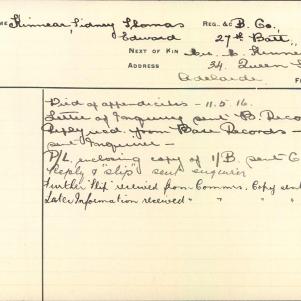 ME Kinnear, Sidney Thomas REG. &C B. Co.
Edward 27th Batt
NEXT OF KIN Mrs.
ADDRESS 34. Queen
Adelaide
Died of appendicitis – 11.5.16.
Letter of Inquiry sent B. Reco
Reply recd. from Base Records –
sent Inquirer –
P/L enclosing copy of 1/B. sent C
Reply & "slip" sent enquirer
Further "slip" received from Commrs. Copy sent
Later Information received " " "